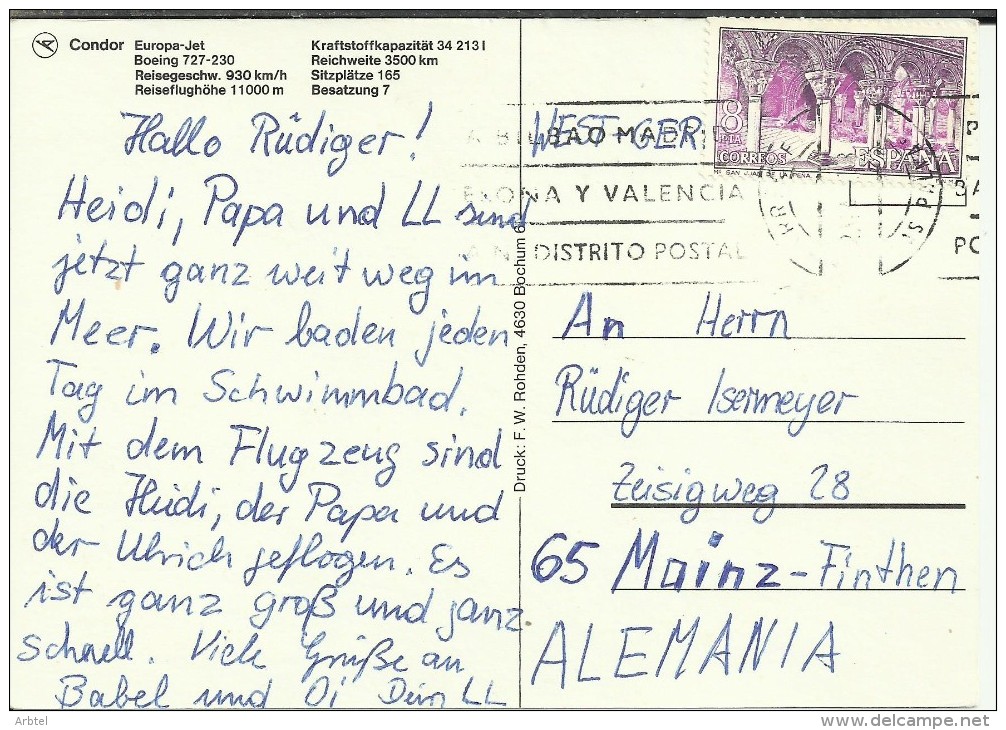 Condor Europa-Jet
Boeing 727-230
Reisegeschw. 930 km/h
Reiseflughöhe 11000 m
Kraftstoffkapazität 34 213 l
Reichweite 3500 km
Sitzplätze 165
Besatzung 7
Hallo Rüdiger!
Heidi, Papa und LL sind
jetzt ganz weit weg im
Meer. Wir baden jeden
Tag im Schwimmbad.
Mit dem Flugzeug sind
die Heidi, der Papa und
der Ulrich geflogen. Es
ist ganz groß und ganz
schnell. Viele Grüße an
Babel und Oi Dein LL
Druck: F. W. Rohden, 4630 Bochum 6
WEST-GER
8
CORREOS ESPAÑA
BAO-MADRI
Y VALENCIA
DISTRITO POSTAL
An Herrn
Rüdiger Isermeyer
Zeisigweg 28
65 Mainz-Finthen
ALEMANIA
Arbtel
www.delcampe.net